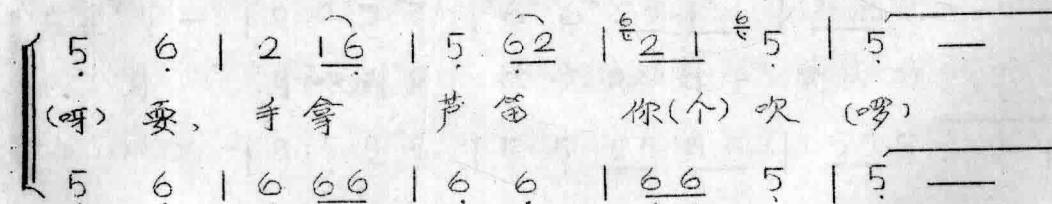 5 6 | 2 1 6 | 5 6 2 | 6 2 1 6 5 | 5 —
(呀) 耍、手拿 芦笛 你(个) 吹 (啰)
5 6 | 6 6 6 | 6 6 | 6 6 5 | 5 —